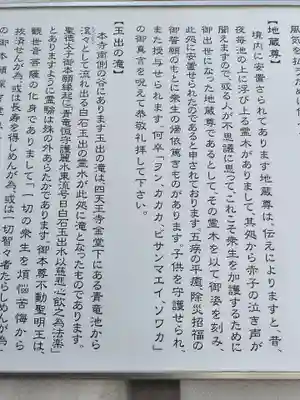 【地蔵尊】
境内に安置されてあります地蔵尊は、伝によりますと、昔、
夜毎池の上に浮び上る霊木がありまして、其処から赤子の泣き声が
聞えますので、或る人が不思議に思って、これこそ衆生を加護するために
御出世になった地蔵尊であるとして、その霊木を以て御姿を刻み、
此処に安置せられたのであると申されております。五病の平癒、除災招福の
御誓願のもとに衆生の帰依篤きものがあります。子供を守護せられ、
また授与せられます。何卒「ヲン、カカカ、ビサンマエイ、ソワカ」
の御真言を唱えて恭敬礼拝して下さい。
【玉出の滝】
本寺南側の谷にあります玉出の滝は四天王寺金堂下にある青竜池から
滾々として流れ出る白石玉出の霊水が此処に滝となったものであります。
聖徳太子御本願縁起に「青竜恒守護麗水東流号曰白石玉出水以慈悲心飲之為法薬」
とありますように霊験は殊の外あらたかであります。御本尊不動聖明王は、
観世音菩薩の化身でありまして「一切の衆生を煩悩苦悔から
抜済せんが為、或は長寿を得しめんが為、或は一切智々者たらしめんが為」